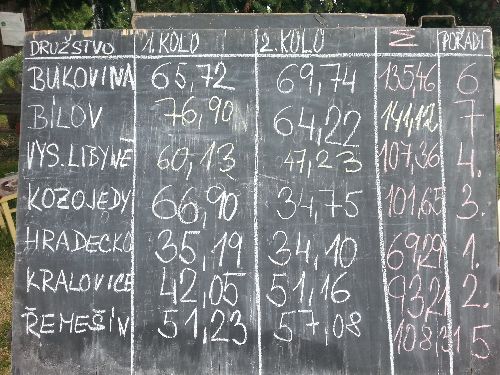 DRUŽSTVO 1. KOLO 2. KOLO Σ POŘADÍ
BUKOVINA 65,72 69,74 135,46 6
BÍLOV 76,90 64,22 141,12 7
VYS. LIBYNĚ 60,13 47,23 107,36 4.
KOZOJEDY 66,90 34,75 101,65 3.
HRADECKO 35,19 34,10 69,29 1.
KRALOVICE 42,05 51,16 93,21 2.
ŘEMEŠÍN 51,23 57,08 108,31 5